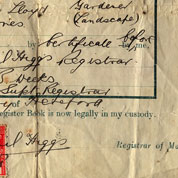 Lloyd Gardener
(Landscape)
by Certificate before me,
Higgs Registrar
Weeks
Supt. Registrar
of Hereford
egister Book is now legally in my custody.
Higgs Registrar of Ma